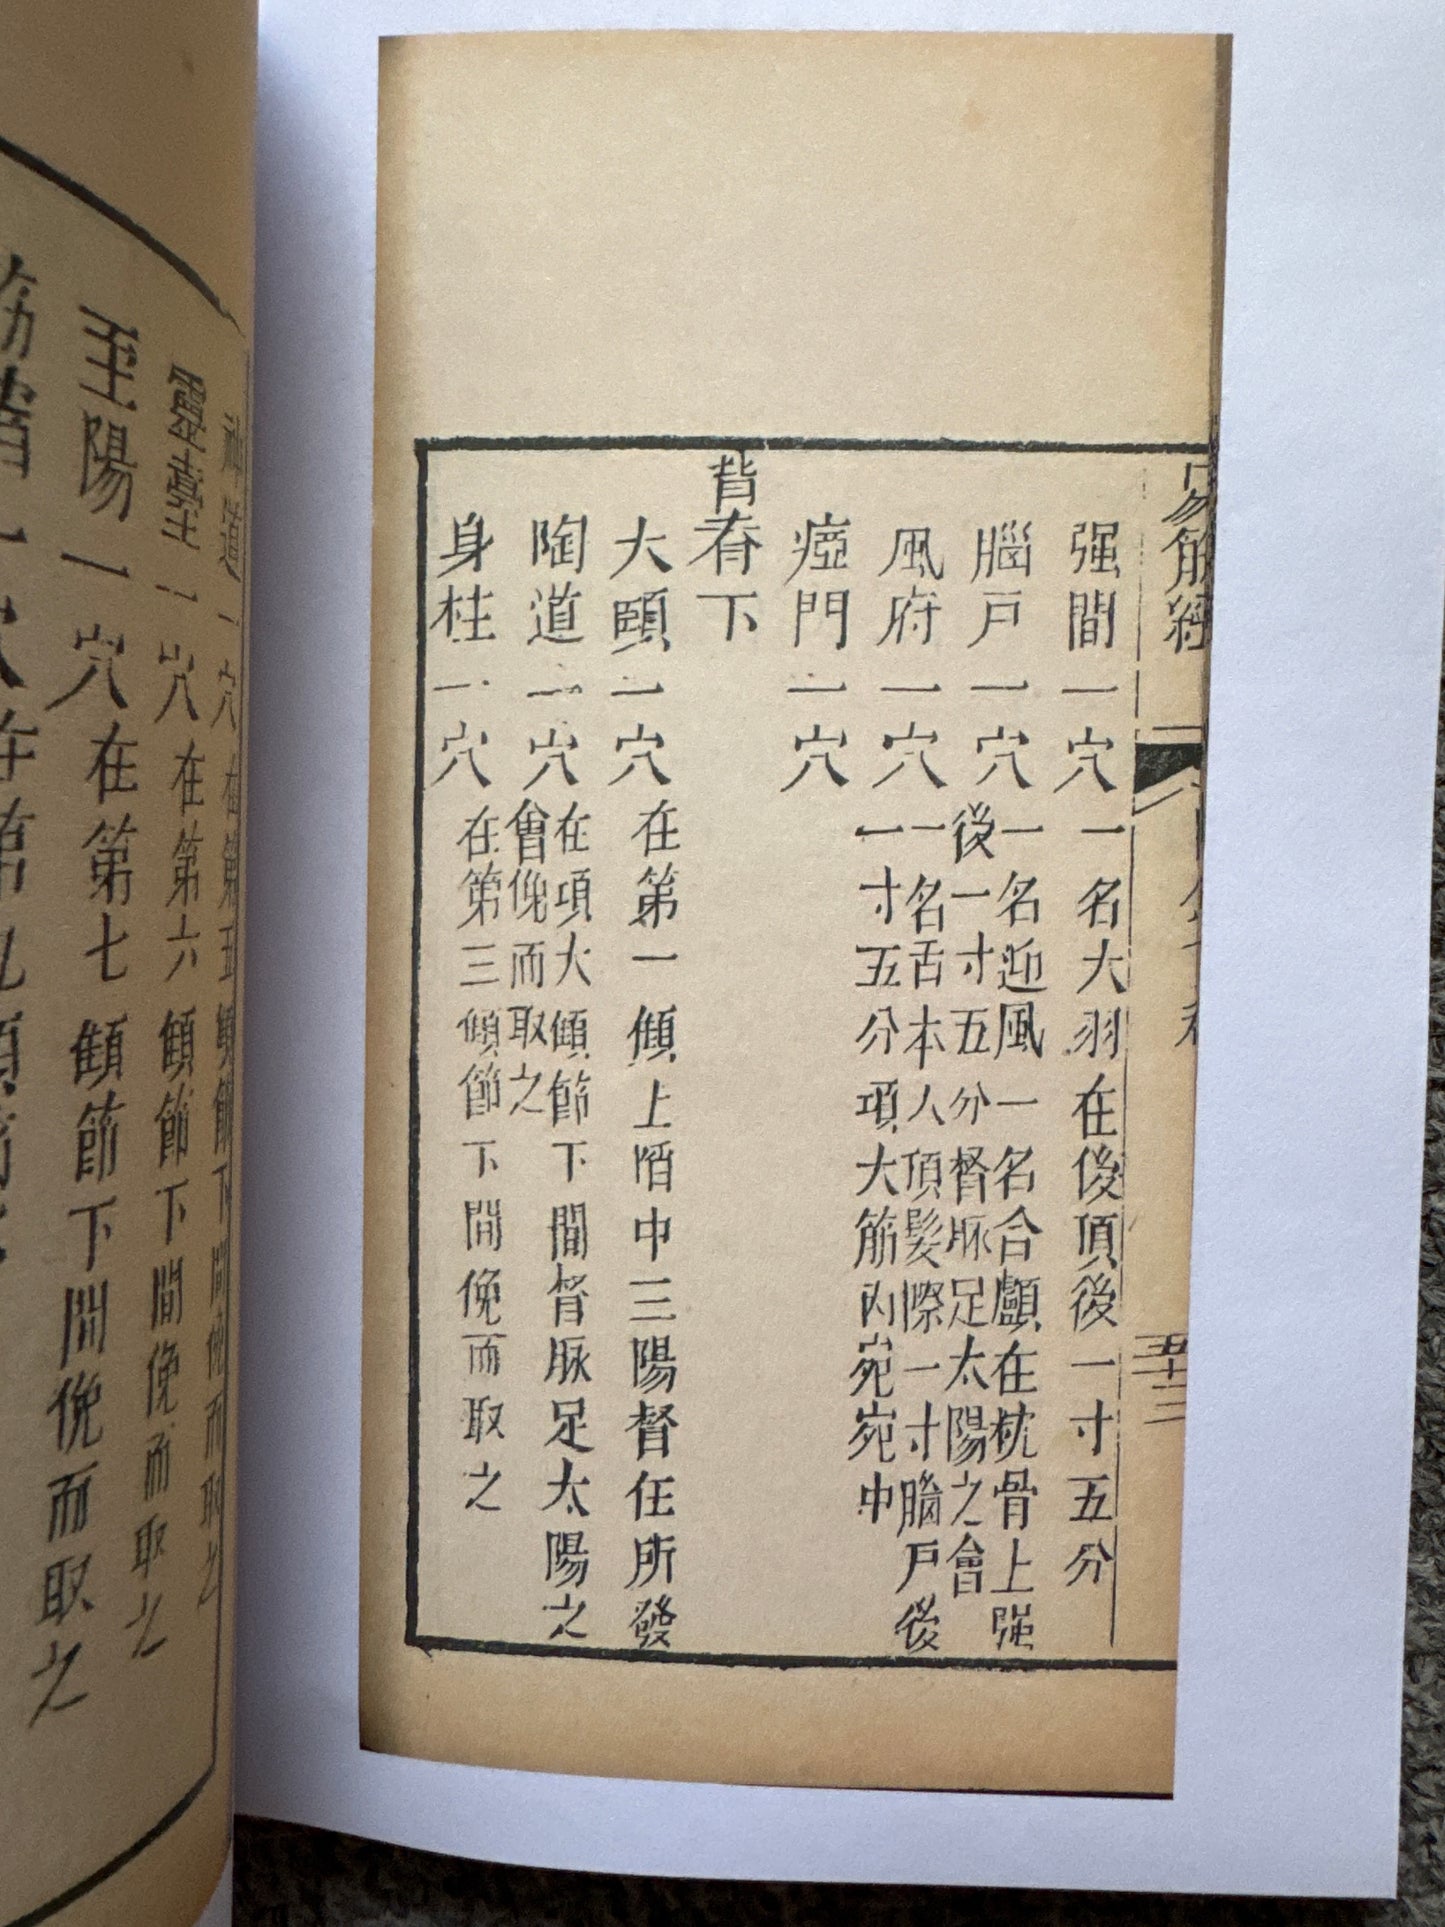 易筋經
强間一穴 一名大羽在後頂後一寸五分
腦戶一穴 一名迎風一名合顱在枕骨上强
後一寸五分督脉足太陽之會
風府一穴 一名舌本人頂髮際一寸腦戶後
一寸五分項大筋內宛宛中
瘂門一穴
背脊下
大頤一穴 在第一傾上陷中三陽督任所發
陶道一穴 在項大傾節下間督脉足太陽之
會俛而取之
身柱一穴 在第三傾節下間俛而取之
神道一穴 在第五傾節下間俛而取之
靈臺一穴 在第六傾節下間俛而取之
至陽一穴 在第七傾節下間俛而取之
一穴在第九傾節